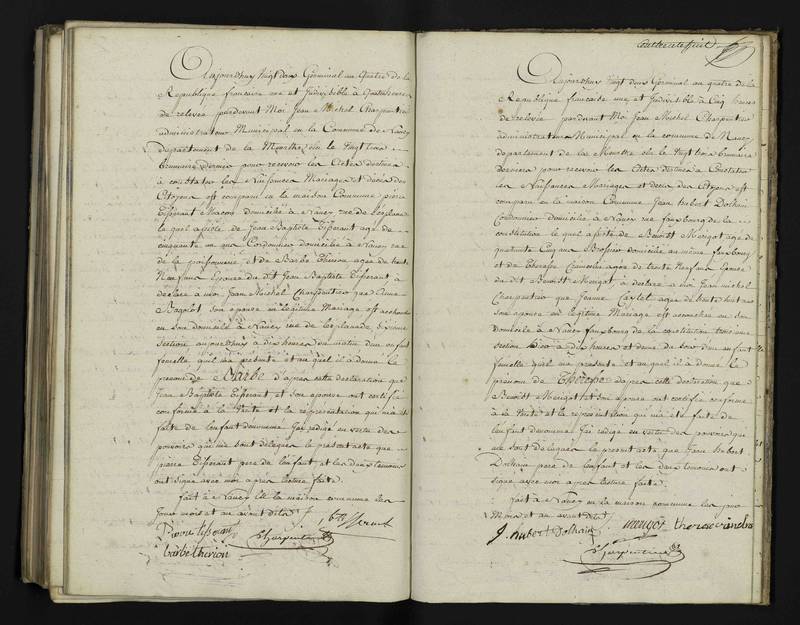 Aujourdhuy Vingt deux Germinal an Quatre de la
Republique francaise une et Indivisible à Quatre heures
de relevée pardevant Moi Jean Michel Charpentier
administrateur Municipal en la Commune de Nancy
departement de la Meurthe élu le Vingt trois
brumaire dernier pour recevoir les Actes destinés
à constater les Naissances Mariages et décès des
Citoyens est comparu en la maison Commune pierre
Tisserant Macon domicilié à Nancy rue de l'esplanade
lequel assisté de Jean Baptiste Tisserant age de
cinquante un ans Cordonnier domicilié à Nancy rue
de la poissonnerie et de Barbe Therion agée de trente
Neuf ans Epouse du dit Jean Baptiste Tisserant à
declaré à moi Jean Michel Charpentier que Anne
Baglot son epouse en légitime Mariage est accouchée
en son domicile à Nancy rue de l'esplanade
section aujourdhui à dix heures du matin d'un enfant
femelle qu'il m'a présenté et auquel il a donné le
prenom de Barbe d'après cette déclaration que
Jean Baptiste Tisserant et son épouse ont certifié
conforme à la Vérité et la représentation qui m'a été
faite de l'enfant denommé J'ai rédigé en vertu des
pouvoirs qui me sont délégués le present acte que
pierre Tisserant pere de l'enfant et les deux temoins
ont signé avec moi après lecture faite.
fait à Nancy en la maison commune les
Jour mois et an avant dits
barbe therion Charpentier
Aujourdhuy Vingt deux Germinal an quatre de la
Republique francaise une et Indivisible à Cinq heures
de relevée pardevant Moi Jean Michel Charpentier
administrateur Municipal en la commune de Nancy
departement de la Meurthe élu le Vingt trois brumaire
dernier pour recevoir les Actes destinés à Constater
les Naissances Mariages et décès des Citoyens est
comparu en la maison Commune Jean hubert Dolhain
Cordonnier domicilié à Nancy rue fauxbourg de la
constitution lequel assisté de Benoitt Mengot age de
quarante Cinq ans Brossier domicilié au même fauxbourg
et de Therese agée de trente Neuf ans Epouse
du dit Benoitt Mengot, à declaré à moi Jean michel
Charpentier que Jeanne agée de trente huit ans
son epouse en legitime Mariage est accouchée en son
domicile à Nancy fauxbourg de la constitution
section hier à dix heures et demie du soir d'un enfant
femelle qu'il m'a presenté et auquel il a donné le
prenom de Therese d'apres cette declaration que
Benoist Mengot et son epouse ont certifié conforme
à la Verité et la représentation qui m'a été faite de
l'enfant denommé J'ai redigé en vertu des pouvoirs qui
me sont délégués le present acte que Jean hubert
Dolhain pere de l'enfant et les deux temoins ont
signé avec moi après lecture faite.
fait à Nancy en la maison commune les jour
Mois et an avant dits
J. hubert Dolhain mengot therese
Charpentier